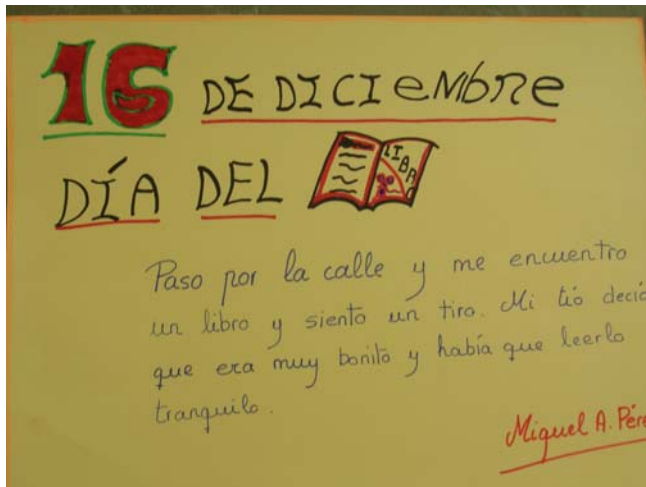 16 DE DICIEMBRE
DÍA DEL LIBRO
Paso por la calle y me encuentro
un libro y siento un tiro. Mi tío decía
que era muy bonito y había que leerlo
tranquilo.
Miguel A. Pére